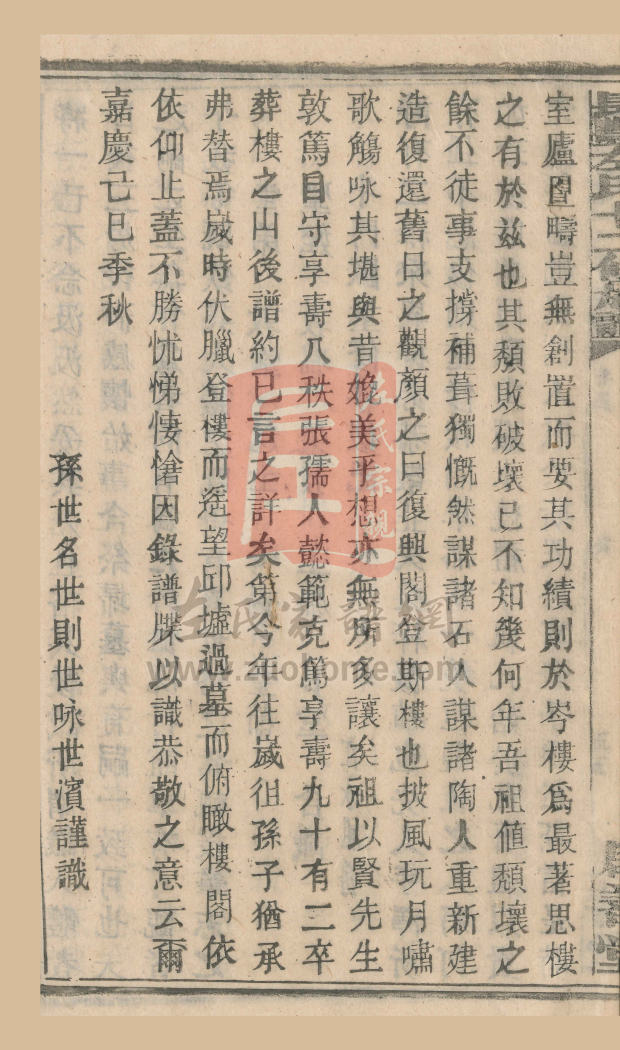 室廬圖疇豈無創置而要其功績則於岑樓為最著思樓
之有於兹也其頹敗破壞已不知幾何年吾祖值頹壞之
餘不徒事支撐補葺獨慨然謀諸石人謀諸陶人重新建
造復還舊日之觀顏之曰復興閣登斯樓也披風玩月嘯
歌觴咏其堪與昔媲美乎想亦無所多讓矣祖以賢先生
敦篤自守享壽八秩張孺人懿範克篤享壽九十有二卒
葬樓之山後譜約已言之詳矣第今年往嵗徂孫子猶承
弗替焉嵗時伏臘登樓而遥望邱墟過墓而俯瞰樓閣依
依仰止蓋不勝怵悌悽愴因錄譜牒以識恭敬之意云爾
嘉慶己巳季秋
孫世名世則世咏世濱謹識
左氏宗親
左氏家譜網
www.zuohome.com